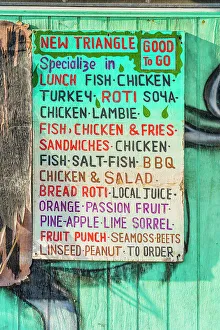 NEW TRIANGLE GOOD TO GO
Specialize in
LUNCH FISH·CHICKEN·
TURKEY· ROTI SOYA·
CHICKEN·LAMBIE·
FISH, CHICKEN & FRIES·
SANDWICHES· CHICKEN·
FISH·SALT-FISH· BBQ
CHICKEN & SALAD·
BREAD ROTI·LOCAL JUICE·
ORANGE·PASSION FRUIT·
PINE-APPLE·LIME SORREL·
FRUIT PUNCH·SEAMOSS·BEETS
LINSEED·PEANUT· TO ORDER